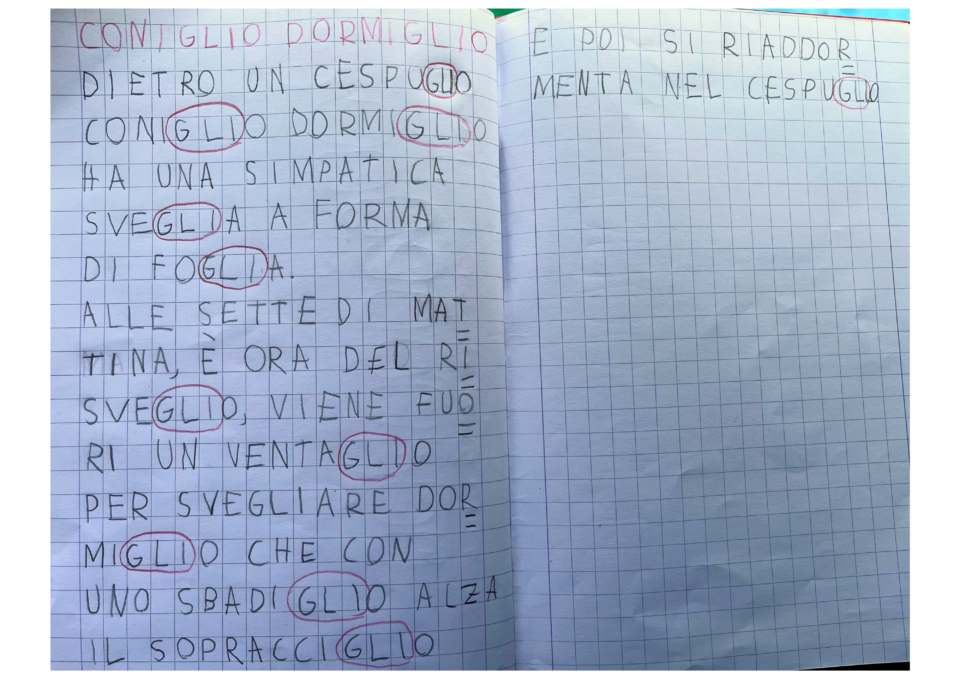 CONIGLIO DORMIGLIO
DIETRO UN CESPUGLIO
CONIGLIO DORMIGLIO
HA UNA SIMPATICA
SVEGLIA A FORMA
DI FOGLIA.
ALLE SETTE DI MAT
TINA, È ORA DEL RI
SVEGLIO, VIENE FUO
RI UN VENTAGLIO
PER SVEGLIARE DOR
MIGLIO CHE CON
UNO SBADIGLIO ALZA
IL SOPRACCIGLIO
E POI SI RIADDOR
MENTA NEL CESPUGLIO